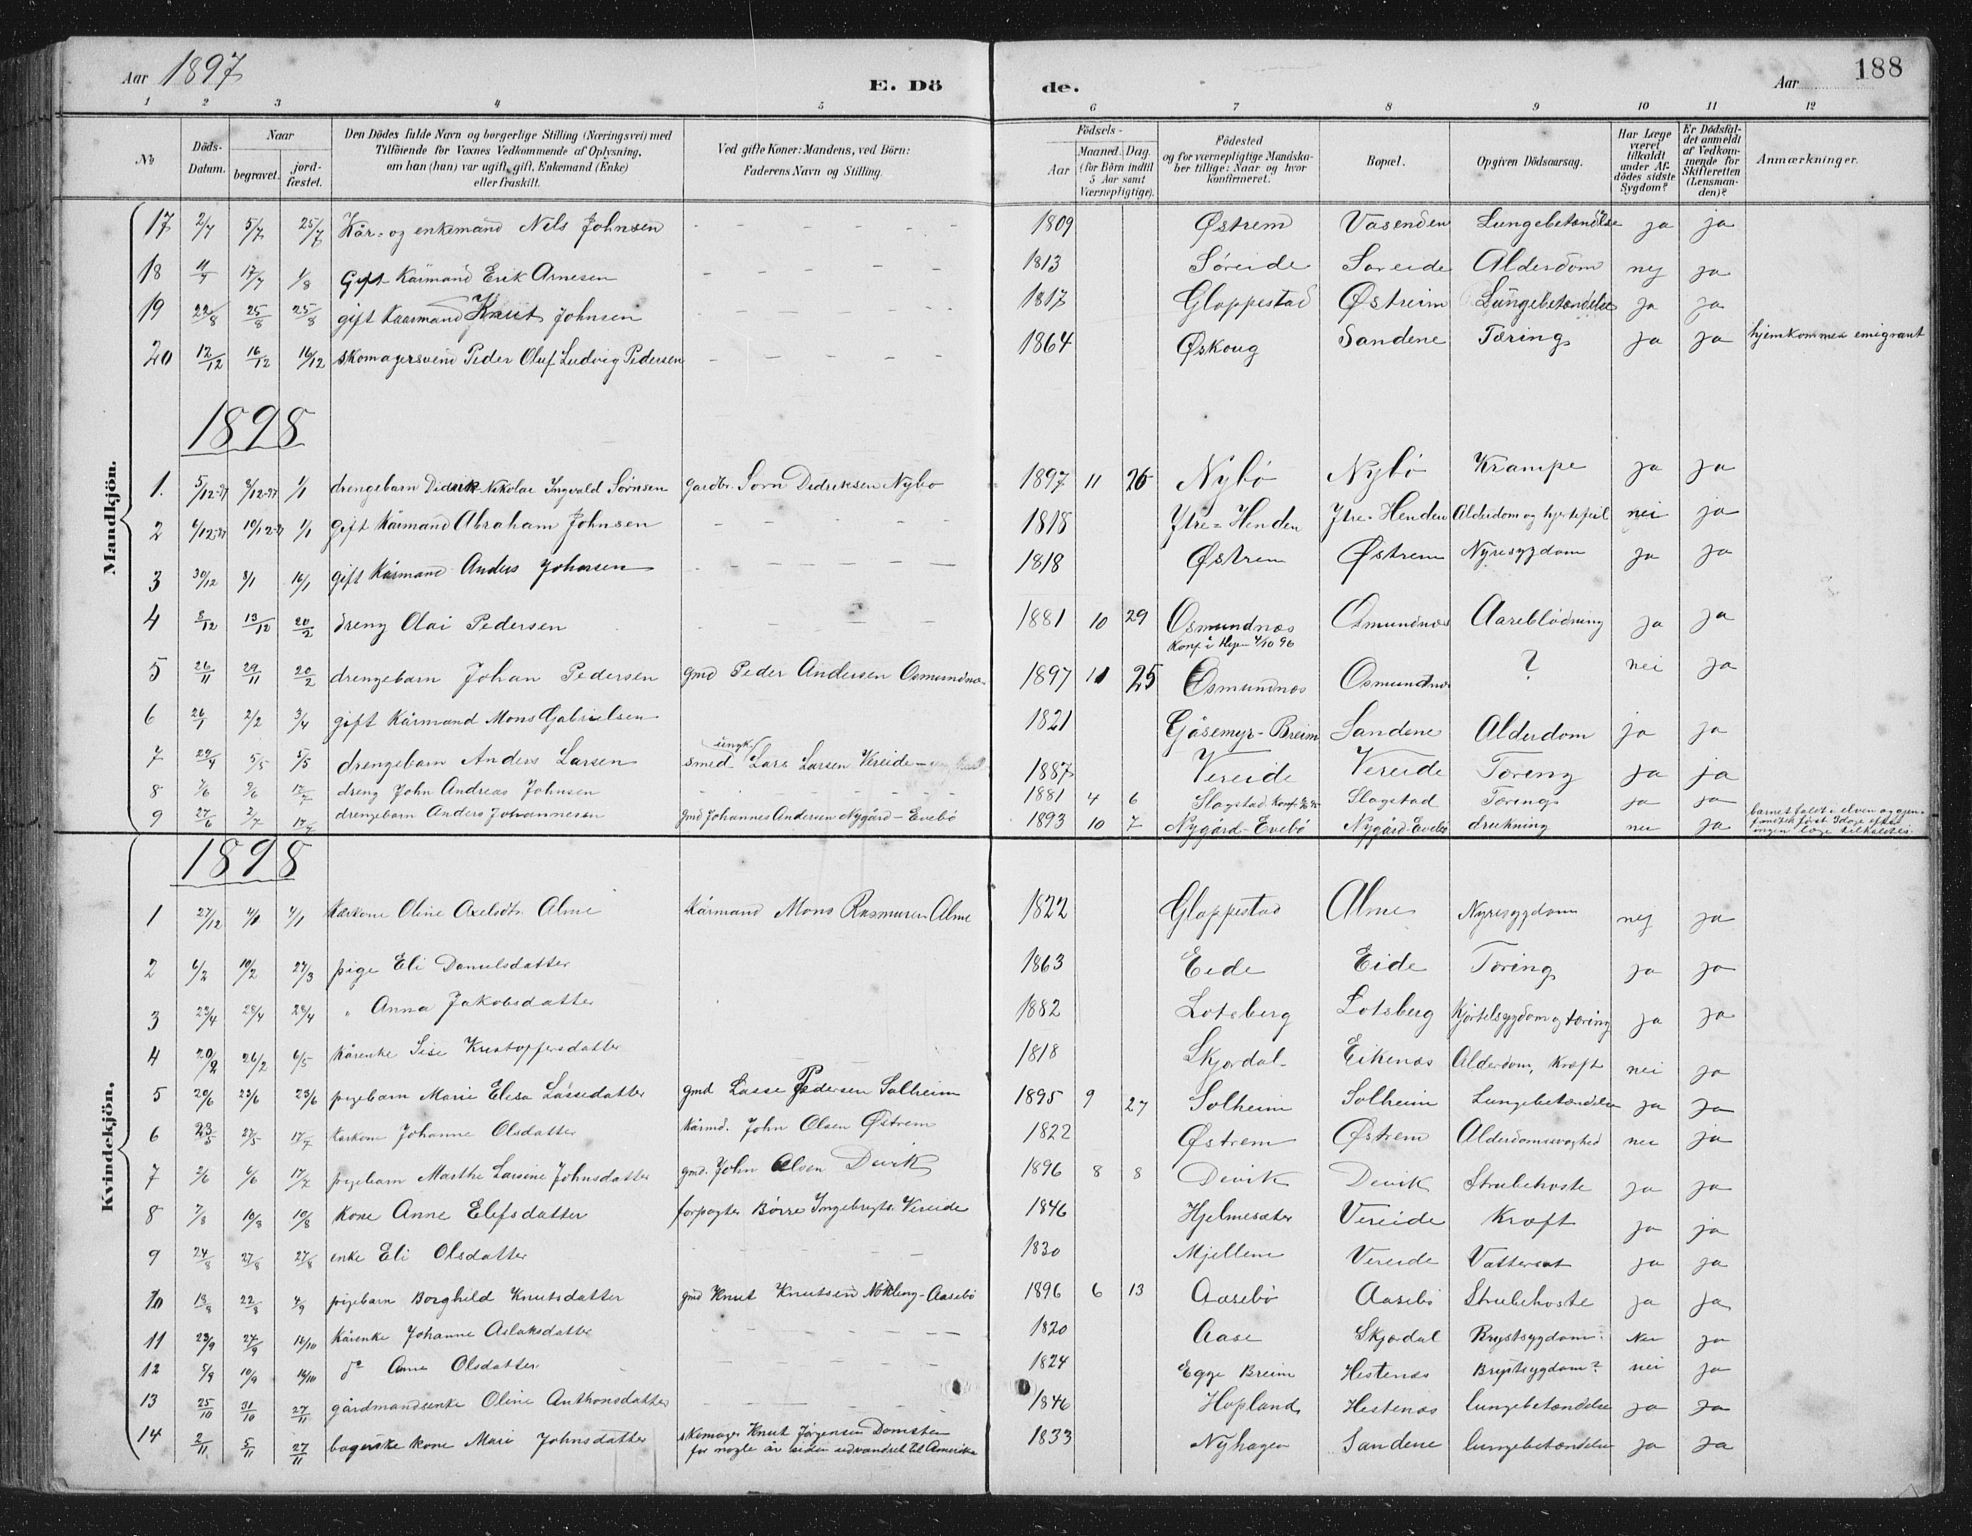 Aar 1897
E. Dö
de.
Aar
188
1 2 3 4 5 6 7 8 9 10 11 12
No
Döds-
Datum.
Naar
begravet.
jord-
fæstet.
Den Dödes fulde Navn og borgerlige Stilling (Næringsvei) med
Tilföiende for Voxnes Vedkommende af Oplysning,
om han (hun) var ugift, gift, Enkemand (Enke)
eller fraskilt.
Ved gifte Koner: Mandens, ved Börn:
Faderens Navn og Stilling.
Födsels-
Aar
Maaned. Dag.
(for Börn indtil
5 Aar samt
Værnepligtige).
Födested
og for værnepligtige Mandska-
ber tillige: Naar og hvor
konfirmeret.
Bopæl.
Opgiven Dödsaarsag.
Har Læge
været
tilkaldt
under Af-
dödes sidste
Sygdom?
Er Dödsfal-
det anmeldt
af Vedkom-
mende for
Skifteretten
(Lensman-
den)?
Anmærkninger.
Mandkjön.
17 2/7 5/7 25/7 Kår- og enkemand Nils Johnsen 1809 Østrem Vasenden Lungebetændelse ja ja
18 11/7 17/7 1/8 Gift Kårmand Erik Arnesen 1813 Søreide Søreide Alderdom nej ja
19 22/8 25/8 25/8 gift Kaarmand Knut Johnsen 1817 Gloppestad Østreim Lungebetændelse ja ja
20 12/12 16/12 16/12 skomagersvend Peder Oluf Ludvig Pedersen 1864 Øskoug Sandene Tæring ja ja hjemkommen emigrant
1898
1. 5/12-97 8/12-97 1/1 drengebarn Didrik Nikolai Ingvald Sørnsen Gardbr. Sørn Didriksen Nybø 1897 11 26 Nybø Nybø Krampe ja ja
2 6/12-97 10/12-97 1/1 gift Kårmand Abraham Johnsen 1818 Ytre-Henden Ytre-Henden Alderdom og hjertefeil nei ja
3 30/12 8/1 16/1 gift Kårmand Anders Johnsen 1818 Østrem Østrem Nyresygdom ja ja
4 8/12 13/12 20/2 dreng Olai Pedersen 1881 10 29 Osmundnæs Osmundnæs Aareblødning ja ja
Konf. i Hyen 4/10 96
5 26/11 29/11 20/2 drengebarn Johan Pedersen gmd Peder Andersen Osmundnæs 1897 11 25 Osmundnæs Osmundnæs ? nei ja
6 26/1 2/2 3/4 gift Kårmand Mons Gabrielsen 1821 Gåsemyr-Breim Sandene Alderdom ja ja
7 29/4 5/5 5/5 drengebarn Anders Larsen ungk. smed Lars Larsen Vereide 1887 Vereide Vereide Tæring ja ja
8 7/6 17/7 dreng John Andreas Johnsen 1881 4 6 Slagstad Slagstad Tæring ja ja
9 27/6 2/7 17/7 drengebarn Anders Johannesen gmd Johannes Andersen Nygård-Evebø 1893 10 7 Nygård-Evebø Nygård-Evebø drukning nei ja barnet faldt i elven og gjen-
fandtes først 3 dage efter
ingen læge tilkaldtes
Kvindekjön.
1898
1 27/12 4/1 4/1 Kårkone Oline Axelsdtr. Alme Kårmand Mons Rasmusen Alme 1822 Gloppestad Alme Nyresygdom nej ja
2 6/2 10/2 27/3 pige Eli Danielsdatter 1863 Eide Eide Tæring ja ja
3 23/4 28/4 28/4 " Anna Jakobsdatter 1882 Lotsberg Lotsberg Kjertelsygdom og tæring ja ja
4 20/2 26/2 6/5 Kårenke Sise Kristoffersdatter 1818 Skjerdal Eikenæs Alderdom, Kræft nei ja
5 20/6 23/6 23/6 pigebarn Marie Elisa Lassedatter gmd Lasse Pedersen Solheim 1895 9 27 Solheim Solheim Lungebetændelse ja ja
6 23/5 27/5 17/7 Karkone Johanne Olsdatter Kårmd. John Olsen Østrem 1822 Østrem Østrem Alderdomssvaghed nei ja
7 2/6 6/6 17/7 pigebarn Marthe Larsine Johnsdatter gmd. John Olsen Devik 1896 8 8 Devik Devik Strubehoste ja ja
8 7/8 10/8 10/8 Kone Anne Elefsdatter forpagter Børre Ingebrigts. Vereide 1846 Hjelmesæter Vereide Kræft ja ja
9 24/8 27/8 27/8 enke Eli Olsdatter 1830 Mjellem Vereide Vattersot ja ja
10 18/8 22/8 4/9 pigebarn Borghild Knutsdatter gmd Knut Knutsen Nøkling-Aasebø 1896 6 13 Aasebø Aasebø Strubehoste ja ja
11 23/9 27/9 16/10 Kårenke Johanne Aslaksdatter 1820 Aase Skjerdal Brystsygdom nei ja
12 5/9 10/9 16/10 do Anna Olsdatter 1824 Egge Breim Hestenæs Brystsygdom? nei ja
13 25/10 31/10 27/11 gårdmandsenke Oline Anthonsdatter 1846 Hopland Hestenæs lungebetændelse ja ja
14 2/11 5/11 27/11 bagerske kone Mari Johnsdatter skomager Knut Jørgensen Domsten
for nogle år siden udvandret til Amerika 1833 Nyhagen Sandene lungebetændelse ja ja